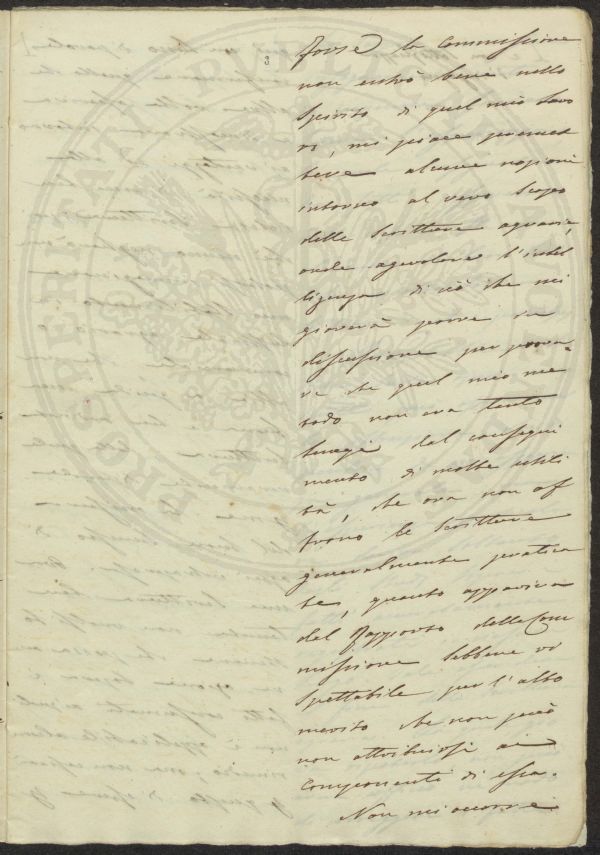 3
forse la Commissione
non entrò bene nello
Spirito di quel mio lavo
ro, mi piace premet
tere alcune nozioni
intorno al vero Scopo
delle Scritture agrarie,
onde agevolare l'intel
ligenza di ciò che mi
gioverà porre in
discussione per prova=
re che quel mio me
todo non era tanto
lungi dal consegui
mento di molte utili
tà, che ora non of
frono le Scritture
generalmente pratica
te, quanto appariva
dal Rapporto della Com
missione sebbene ri
spettabile per l'alto
merito che non può
non attribuirsi ai
Componenti di essa.
Non mi occorre